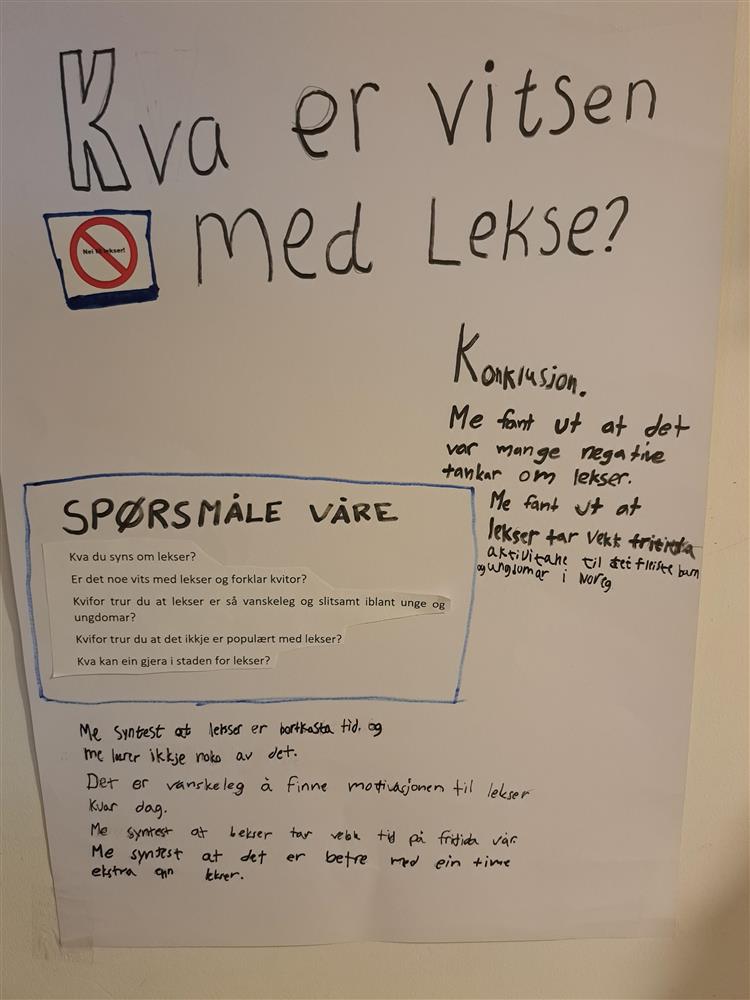 Kva er vitsen
med Lekse?
Nei til lekser!
Konklusjon.
Me fant ut at det
var mange negative
tankar om lekser.
Me fant ut at
lekser tar vekk fritida
aktivitane til dei fleiste barn
og ungdomar i Noreg
SPØRSMÅLE VÅRE
Kva du syns om lekser?
Er det noe vits med lekser og forklar kvitor?
Kvifor trur du at lekser er så vanskeleg og slitsamt iblant unge og
ungdomar?
Kvifor trur du at det ikkje er populært med lekser?
Kva kan ein gjera i staden for lekser?
Me syntest at lekser er bortkasta tid. og
me lærer ikkje noko av det.
Det er vanskeleg å finne motivasjonen til lekser
kvar dag.
Me syntest at lekser tar vekk tid på fritida vår
Me syntest at det er betre med ein time
ekstra enn lekser.